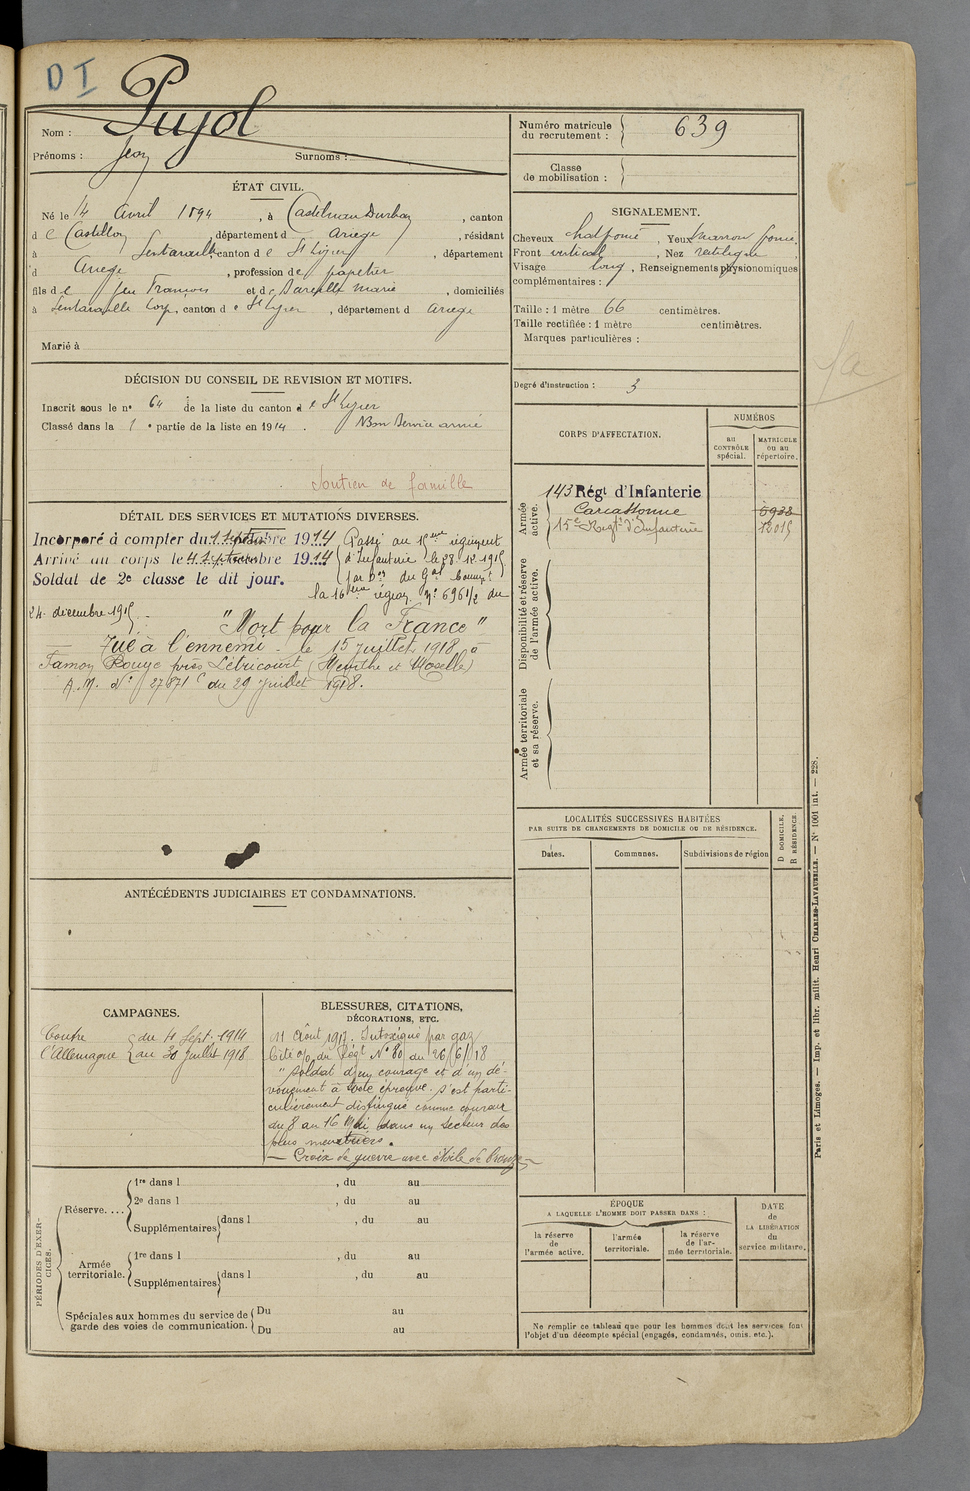 D I
Nom : Pujol
Prénoms : Jean Surnoms :
Numéro matricule du recrutement : 639
Classe de mobilisation :
ÉTAT CIVIL.
Né le 14 Avril 1894, à Castelnau Durban, canton
d e Castillon, département d Ariege, résidant
à Lentaraulle, canton d e St Lizier, département
d Ariege, profession de papetier
fils de feu François et de Marie, domiciliés
à Lentaraulle, canton d e St Lizier, département d Ariege
Marié à
SIGNALEMENT.
Cheveux chat foncé, Yeux marron foncé
Front vertical, Nez rectiligne,
Visage long, Renseignements physionomiques
complémentaires :
Taille : 1 mètre 66 centimètres.
Taille rectifiée : 1 mètre centimètres.
Marques particulières :
Degré d'instruction : 3
DÉCISION DU CONSEIL DE REVISION ET MOTIFS.
Inscrit sous le n° 64 de la liste du canton d e St Lizier
Classé dans la 1e partie de la liste en 1914. Bon Service armé
Soutien de famille
CORPS D'AFFECTATION.
NUMÉROS
au CONTRÔLE spécial.
MATRICULE ou au répertoire.
Armée active.
143 Régt d'Infanterie
Carcassonne 6938
15e Regt d'Infanterie 12015
Disponibilité et réserve de l'armée active.
Armée territoriale et sa réserve.
DÉTAIL DES SERVICES ET MUTATIONS DIVERSES.
Incorporé à compter du 1 septembre 1914
Arrivé au corps le 4 septembre 1914
Soldat de 2e classe le dit jour.
Passé au 15eme régiment
d'Infanterie le 28.12.1915
par Don du Gal Commt
la 16eme région Nº 696 1/2 du
24 décembre 1915.
"Mort pour la France"
Tué à l'ennemi le 15 Juillet 1918 à
Tamon Rouge près Létricourt (Meurthe et Moselle)
A.M. Nº 27871 C du 29 Juillet 1918.
LOCALITÉS SUCCESSIVES HABITÉES
PAR SUITE DE CHANGEMENTS DE DOMICILE OU DE RÉSIDENCE.
Dates.
Communes.
Subdivisions de région
D DOMICILE. R RÉSIDENCE
ANTÉCÉDENTS JUDICIAIRES ET CONDAMNATIONS.
CAMPAGNES.
Contre l'Allemagne
du 4 Sept. 1914
au 30 Juillet 1918
BLESSURES, CITATIONS,
DÉCORATIONS, ETC.
11 Août 1917. Intoxiqué par gaz
Cité O/ du Régt Nº 80 du 26/6/18
"Soldat d'un courage et d'un dé-
vouement à toute épreuve. S'est parti-
culièrement distingué comme coureur
du 8 au 16 Mai dans un secteur des
plus meurtriers.
— Croix de guerre avec étoile de bronze —
PÉRIODES D'EXERCICES.
Réserve....
1re dans l , du au
2e dans l , du au
Supplémentaires dans l , du au
Armée territoriale.
1re dans l , du au
Supplémentaires dans l , du au
Spéciales aux hommes du service de
garde des voies de communication.
Du au
Du au
ÉPOQUE
A LAQUELLE L'HOMME DOIT PASSER DANS :
la réserve de l'armée active.
l'armée territoriale.
la réserve de l'armée territoriale.
DATE de LA LIBÉRATION du service militaire.
Ne remplir ce tableau que pour les hommes dont les services font
l'objet d'un décompte spécial (engagés, condamnés, omis, etc.).
Paris et Limoges. — Imp. et libr. milit. Henri CHARLES-LAVAUZELLE. — Nº 1001 int. — 228.